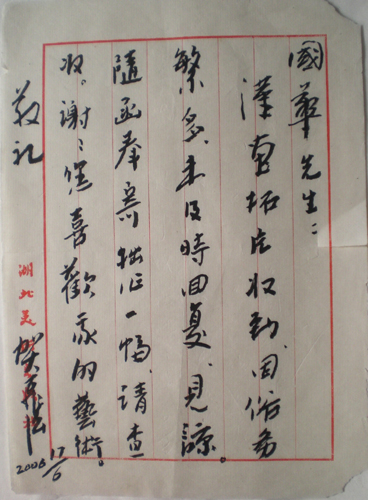 國華先生：
漢画拓片收到，因俗务
繁多，未及時回复，見諒。
隨函奉寄拙作一幅，請查
收。谢谢您喜歡我的藝術。
敬礼
湖北美
2006 17/6